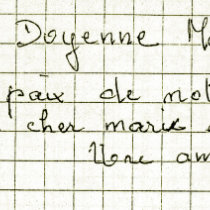 Doyenne M
paix de not
cher marie
Une am